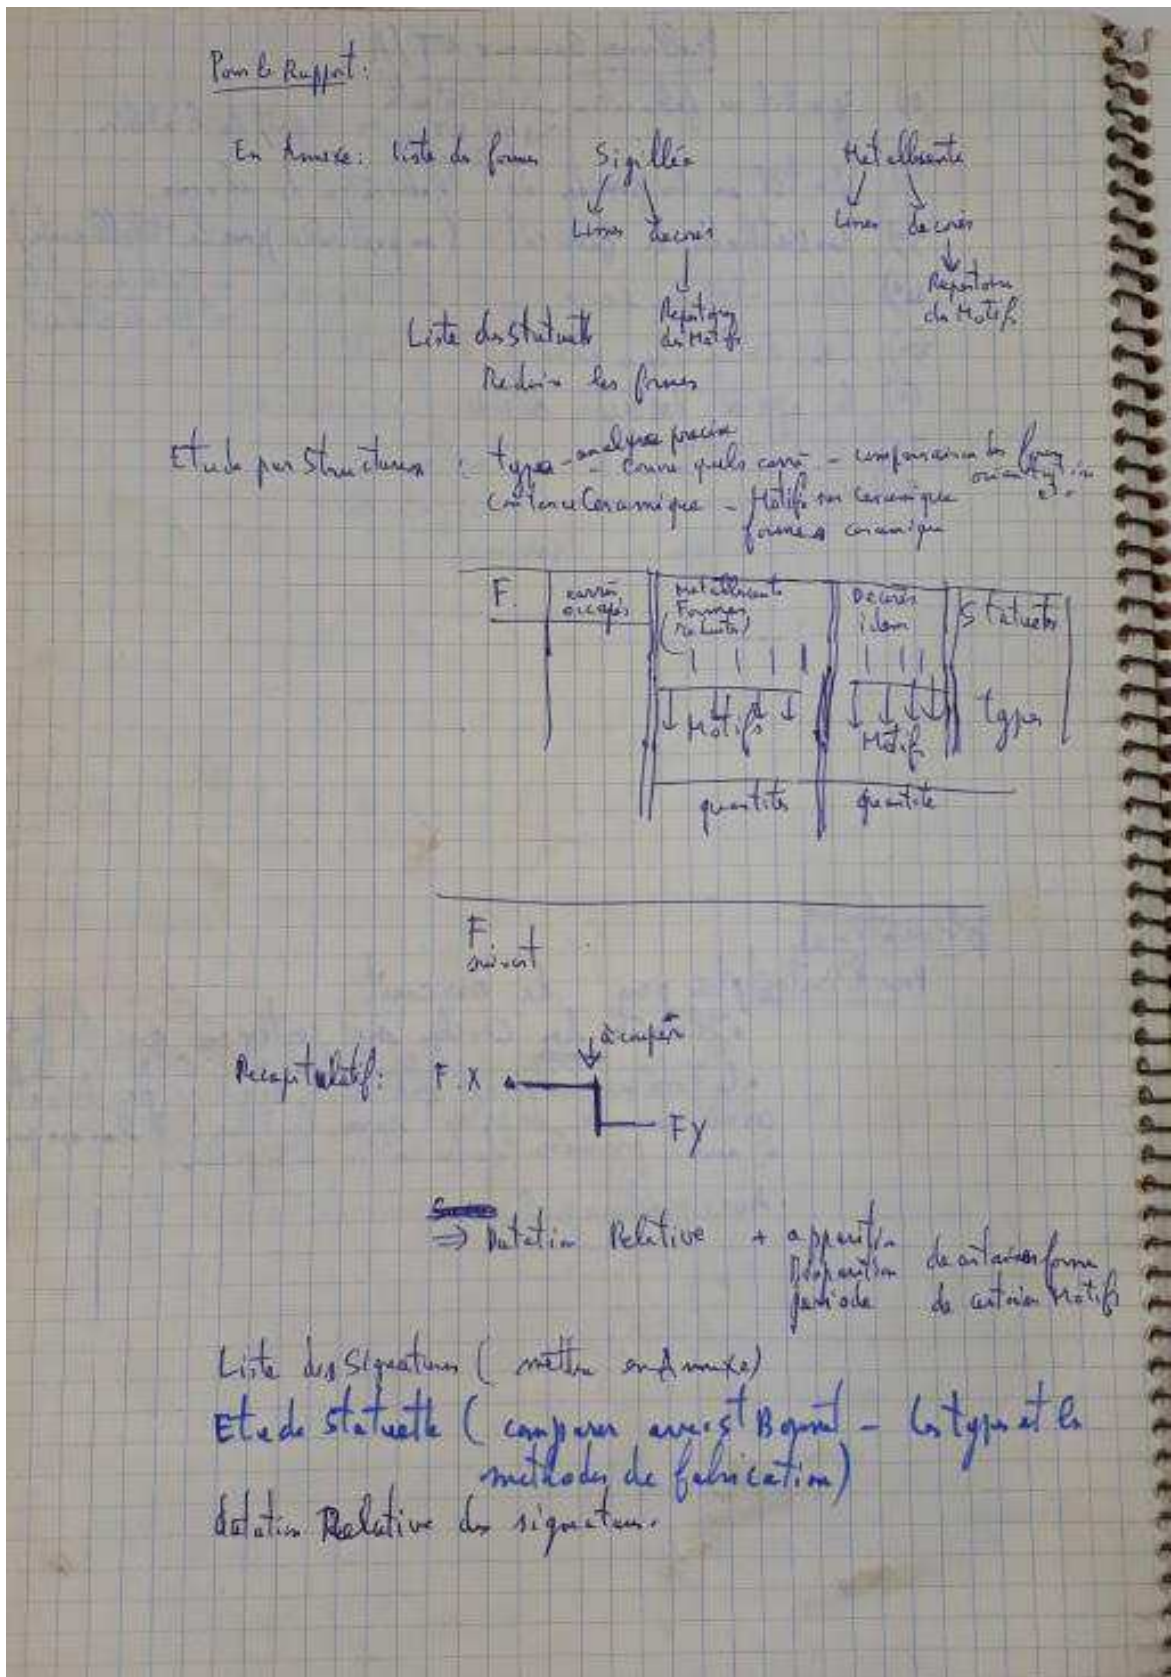 Pour le Rapport:
En Annexe: liste des formes Sigillée Metallescente
Lisses decorés Lisses decorés
Repertoire des Motifs
Repertoire des Motifs
Liste des Statuettes
Reduire les formes
Etude par Structures : type - analyse precise
- couvre quels carrés - comparaison des formes orientation
Contenu Ceramique - Motifs sur Ceramique
formes ceramique
F. carrés occupés Metallescente Formes (reduites) Decorés idem Statuettes
Motifs Motifs types
quantités quantité
F. suivant
à couper
Recapitulatif: F.X
FY
⇒ Datation Relative + apparition
Disparition de certaines forme
periode de certains Motifs
Liste des Signatures ( mettre en Annexe)
Etude statuette ( comparer avec St Bonnet - les types et les
methodes de fabrication)
datation Relative des signatures.